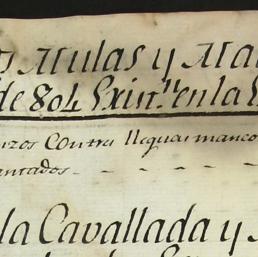 s Mulas y Ma
de 804 Exin.tt en la
nzos Contra lleguas manco
antados
la Cavallada y